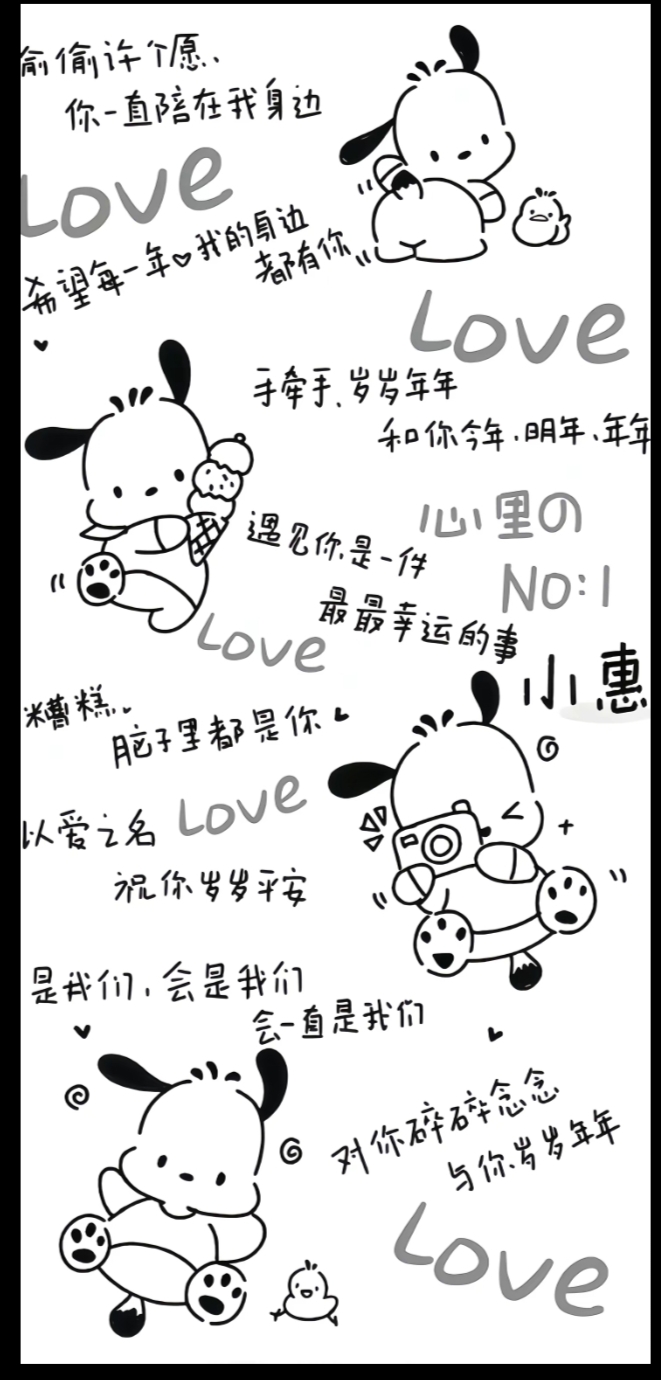 偷偷许个愿、
你一直陪在我身边
Love
希望每一年我的身边
都有你
Love
手牵手、岁岁年年
和你今年、明年、年年
心里の
NO:1
遇见你是一件
最最幸运的事
Love
小惠
糟糕、
脑子里都是你
Love
以爱之名
祝你岁岁平安
是我们，会是我们
会一直是我们
对你碎碎念念
与你岁岁年年
Love